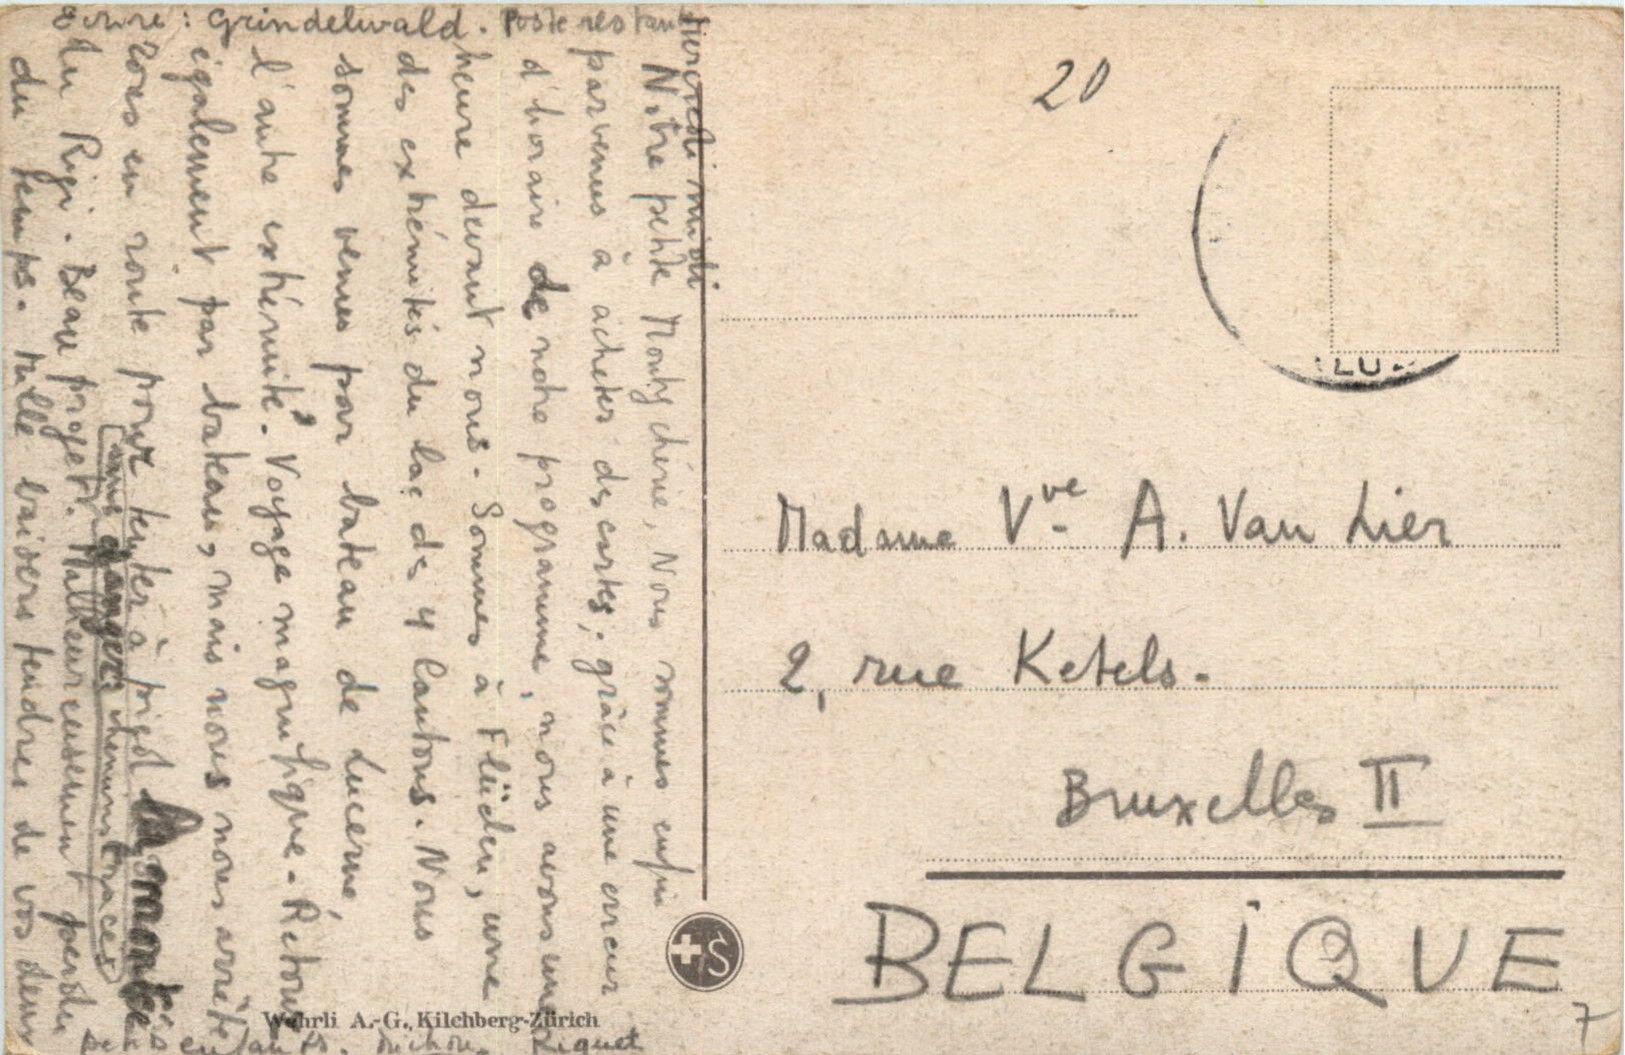 Ecrire : Grindelwald. Poste restante
Mercredi midi
Notre petite Mouty chérie, Nous sommes enfin
parvenus à acheter des cartes, grâce à une erreur
d'horaire de notre programme, nous avons une
heure devant nous. Sommes à Flüelen, une
des extrémités du lac des 4 Cantons. Nous
sommes venus par bateau de Lucerne,
l'autre extrémité. Voyage magnifique. Retour
également par bateau, mais nous nous arrêterons
en route pour tenter à pied la montée
sans danger, chemins tracés
du Rigi. Beau projet. Malheureusement perdu
du temps. Mille baisers tendres de vos deux
petits enfants. Riquet
20
LU
Madame Vve A. Van Lier
2, rue Ketels.
Bruxelles II
BELGIQUE
7
S
Wehrli A.-G., Kilchberg-Zürich